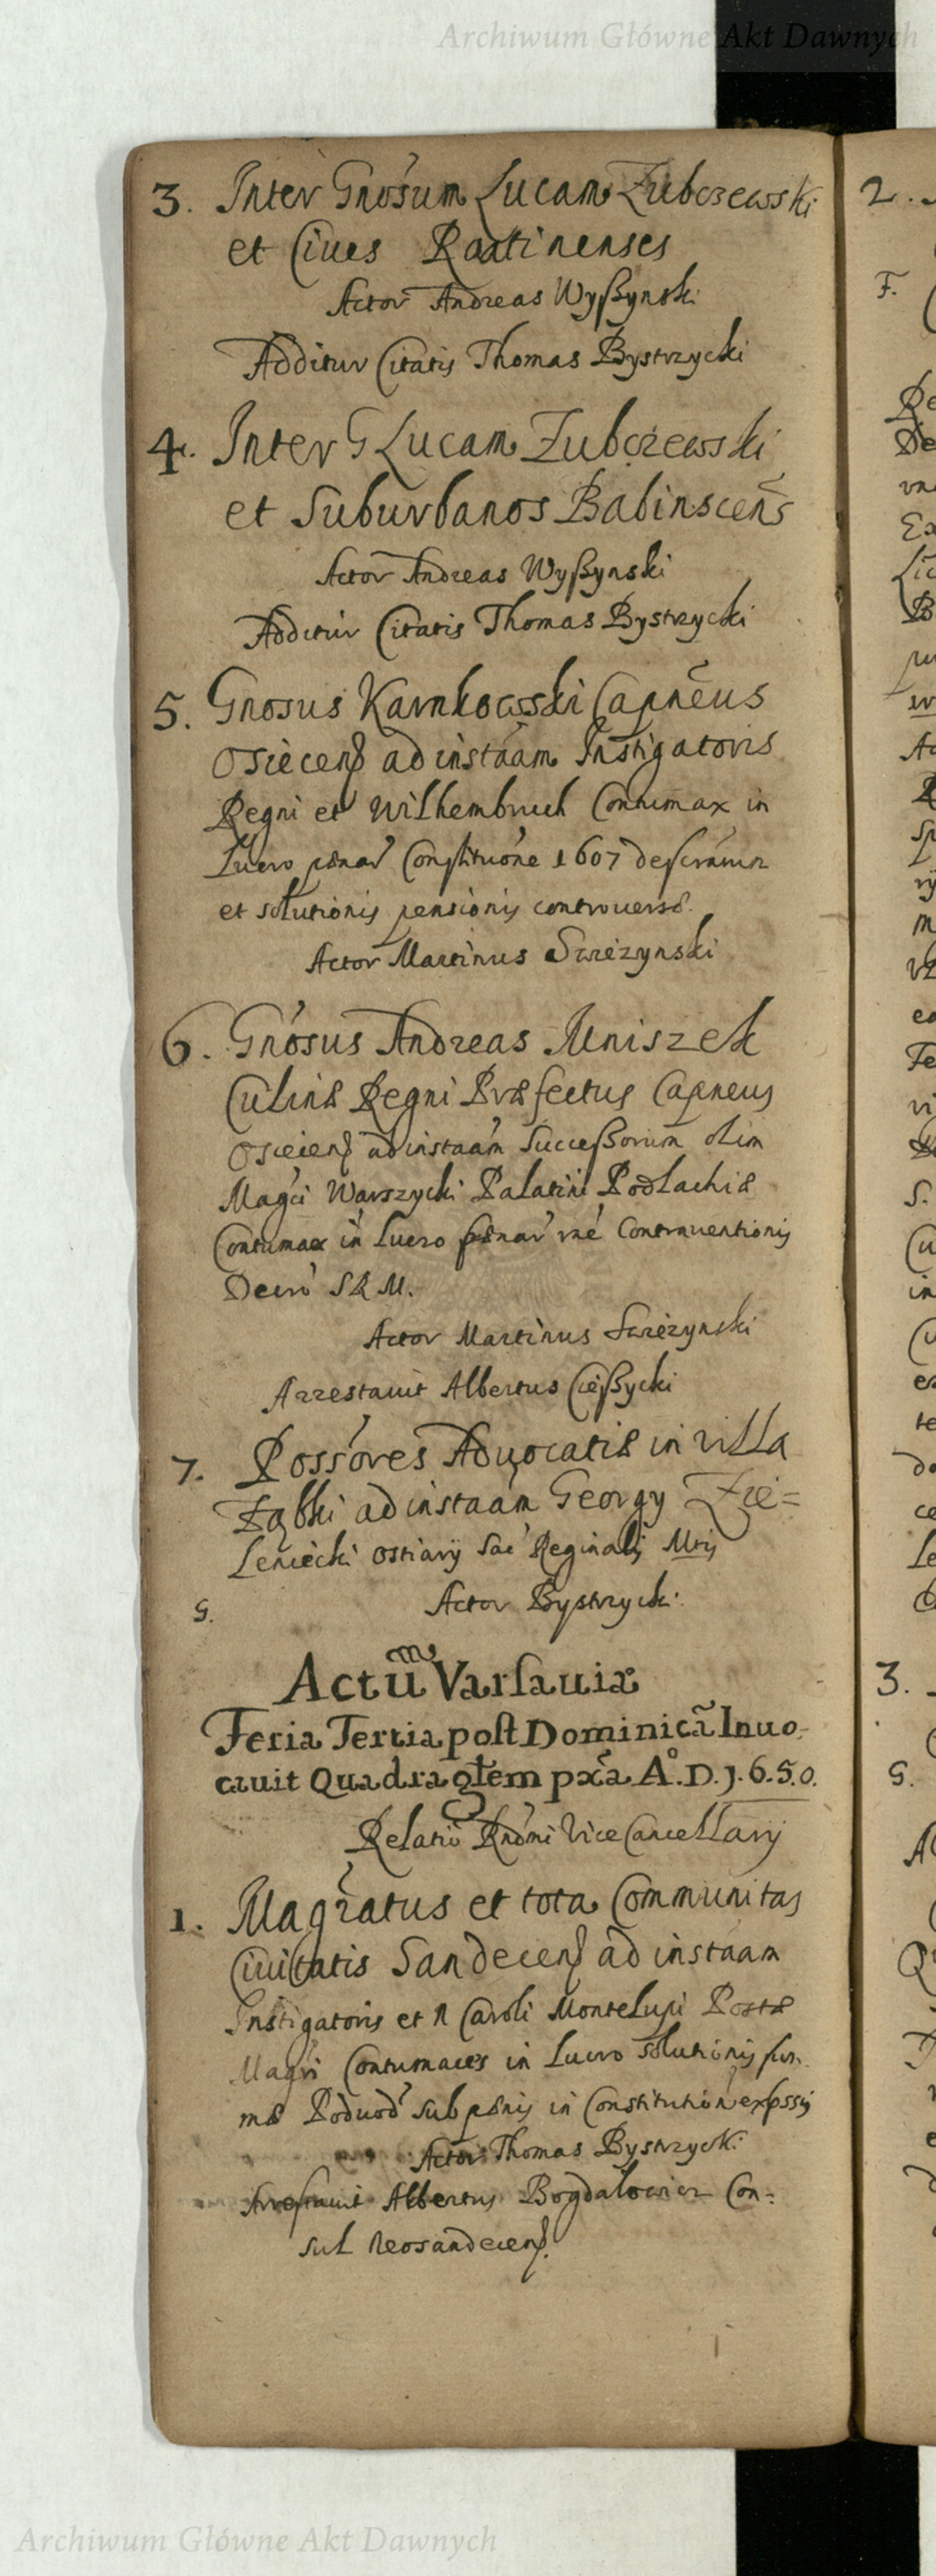 Archiwum Główne Akt Dawnych
3. Inter Gnosum Lucam Zubczewski
et Ciues Rattinenses
Actor Andreas Wyßynski
Additur Citatis Thomas Bystrzycki
4. Inter G Lucam Zubczewski
et Suburbanos Babinscens̃
Actor Andreas Wyßynski
Additur Citatis Thomas Bystrzycki
5. Gnosus Karnkowski Capneus
Osiecens ad instãam Instigatoris
Regni et Wilhembruch Contumax in
Lucro pænar Constituõne 1607 descrãtur
et solutionis pensionis controuersæ
Actor Martinus Swiézynski
6. Gnosus Andreas Mniszek
Culinæ Regni Præfectus Capneus
Osiecien ad instaam Successorum olim
Magci Warszycki Palatini Podlachiæ
Contumax in Lucro pænar rne Contrauentionis
Decri S R M.
Actor Martinus Swiézynski
Arrestauit Albertus Cießycki
7. Possores Aduocatiæ in villa
Ząbki ad instaam Georgy Zie=
Leniecki Ostiarij Sac Reginalis Mtis
G. Actor Bystrzycki.
Actũm Varsauiæ
Feria Tertia post Dominicã Inuo-
cauit Quadraglem pxã A.º D. J. 6. 5. 0.
Relatio Rndmi Vice Cancellary
1. Magratus et tota Communitas
Ciuitatis Sandecens ad instaam
Instigatoris et N Caroli Montelupi Postæ
Magri Contumaces in Lucro Solutionis sum
mæ Poduod sub pænis in Constitution expssis
Actor Thomas Bystrzycki
Arrestauit Albertus Bogdalowicz Con=
sul Neosandecens.
Archiwum Główne Akt Dawnych